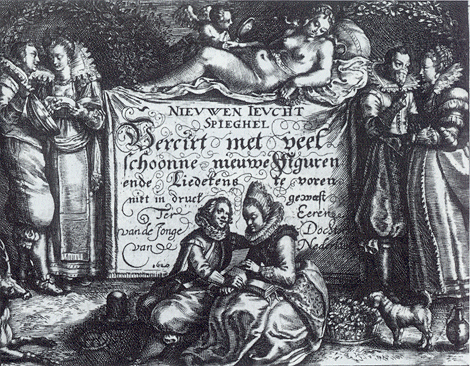 NIEVWEN IEVCHT
SPIEGHEL
Verciert met veel
schoonne nieuwe Figuren
ende Liedekens te voren
niet in druck geweest
Ter Eeren
van de Jonge Docht
van de Nederla